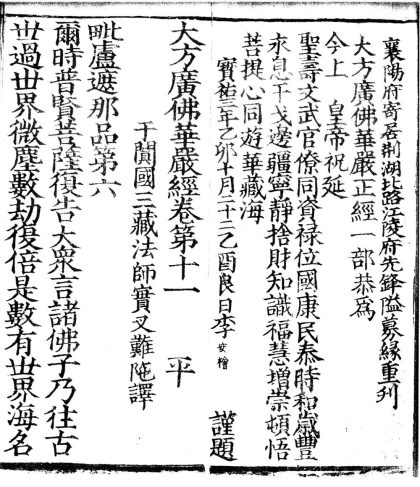 襄陽府寄居荆湖北路江陵府先鋒隘募緣重刊
大方廣佛華嚴正經一部恭爲
今上 皇帝祝延
聖壽文武官僚同資禄位國康民泰時和歲豐
永息干戈邊疆寧靜捨財知識福慧增崇頓悟
菩提心同遊華藏海
寶祐三年乙卯十月二十三乙酉良日李安檜 謹題
大方廣佛華嚴經卷第十一 平
于闐國三藏法師實叉難陁譯
毗盧遮那品第六
爾時普賢菩薩復告大衆言諸佛子乃往古
世過世界微塵數劫復倍是數有世界海名